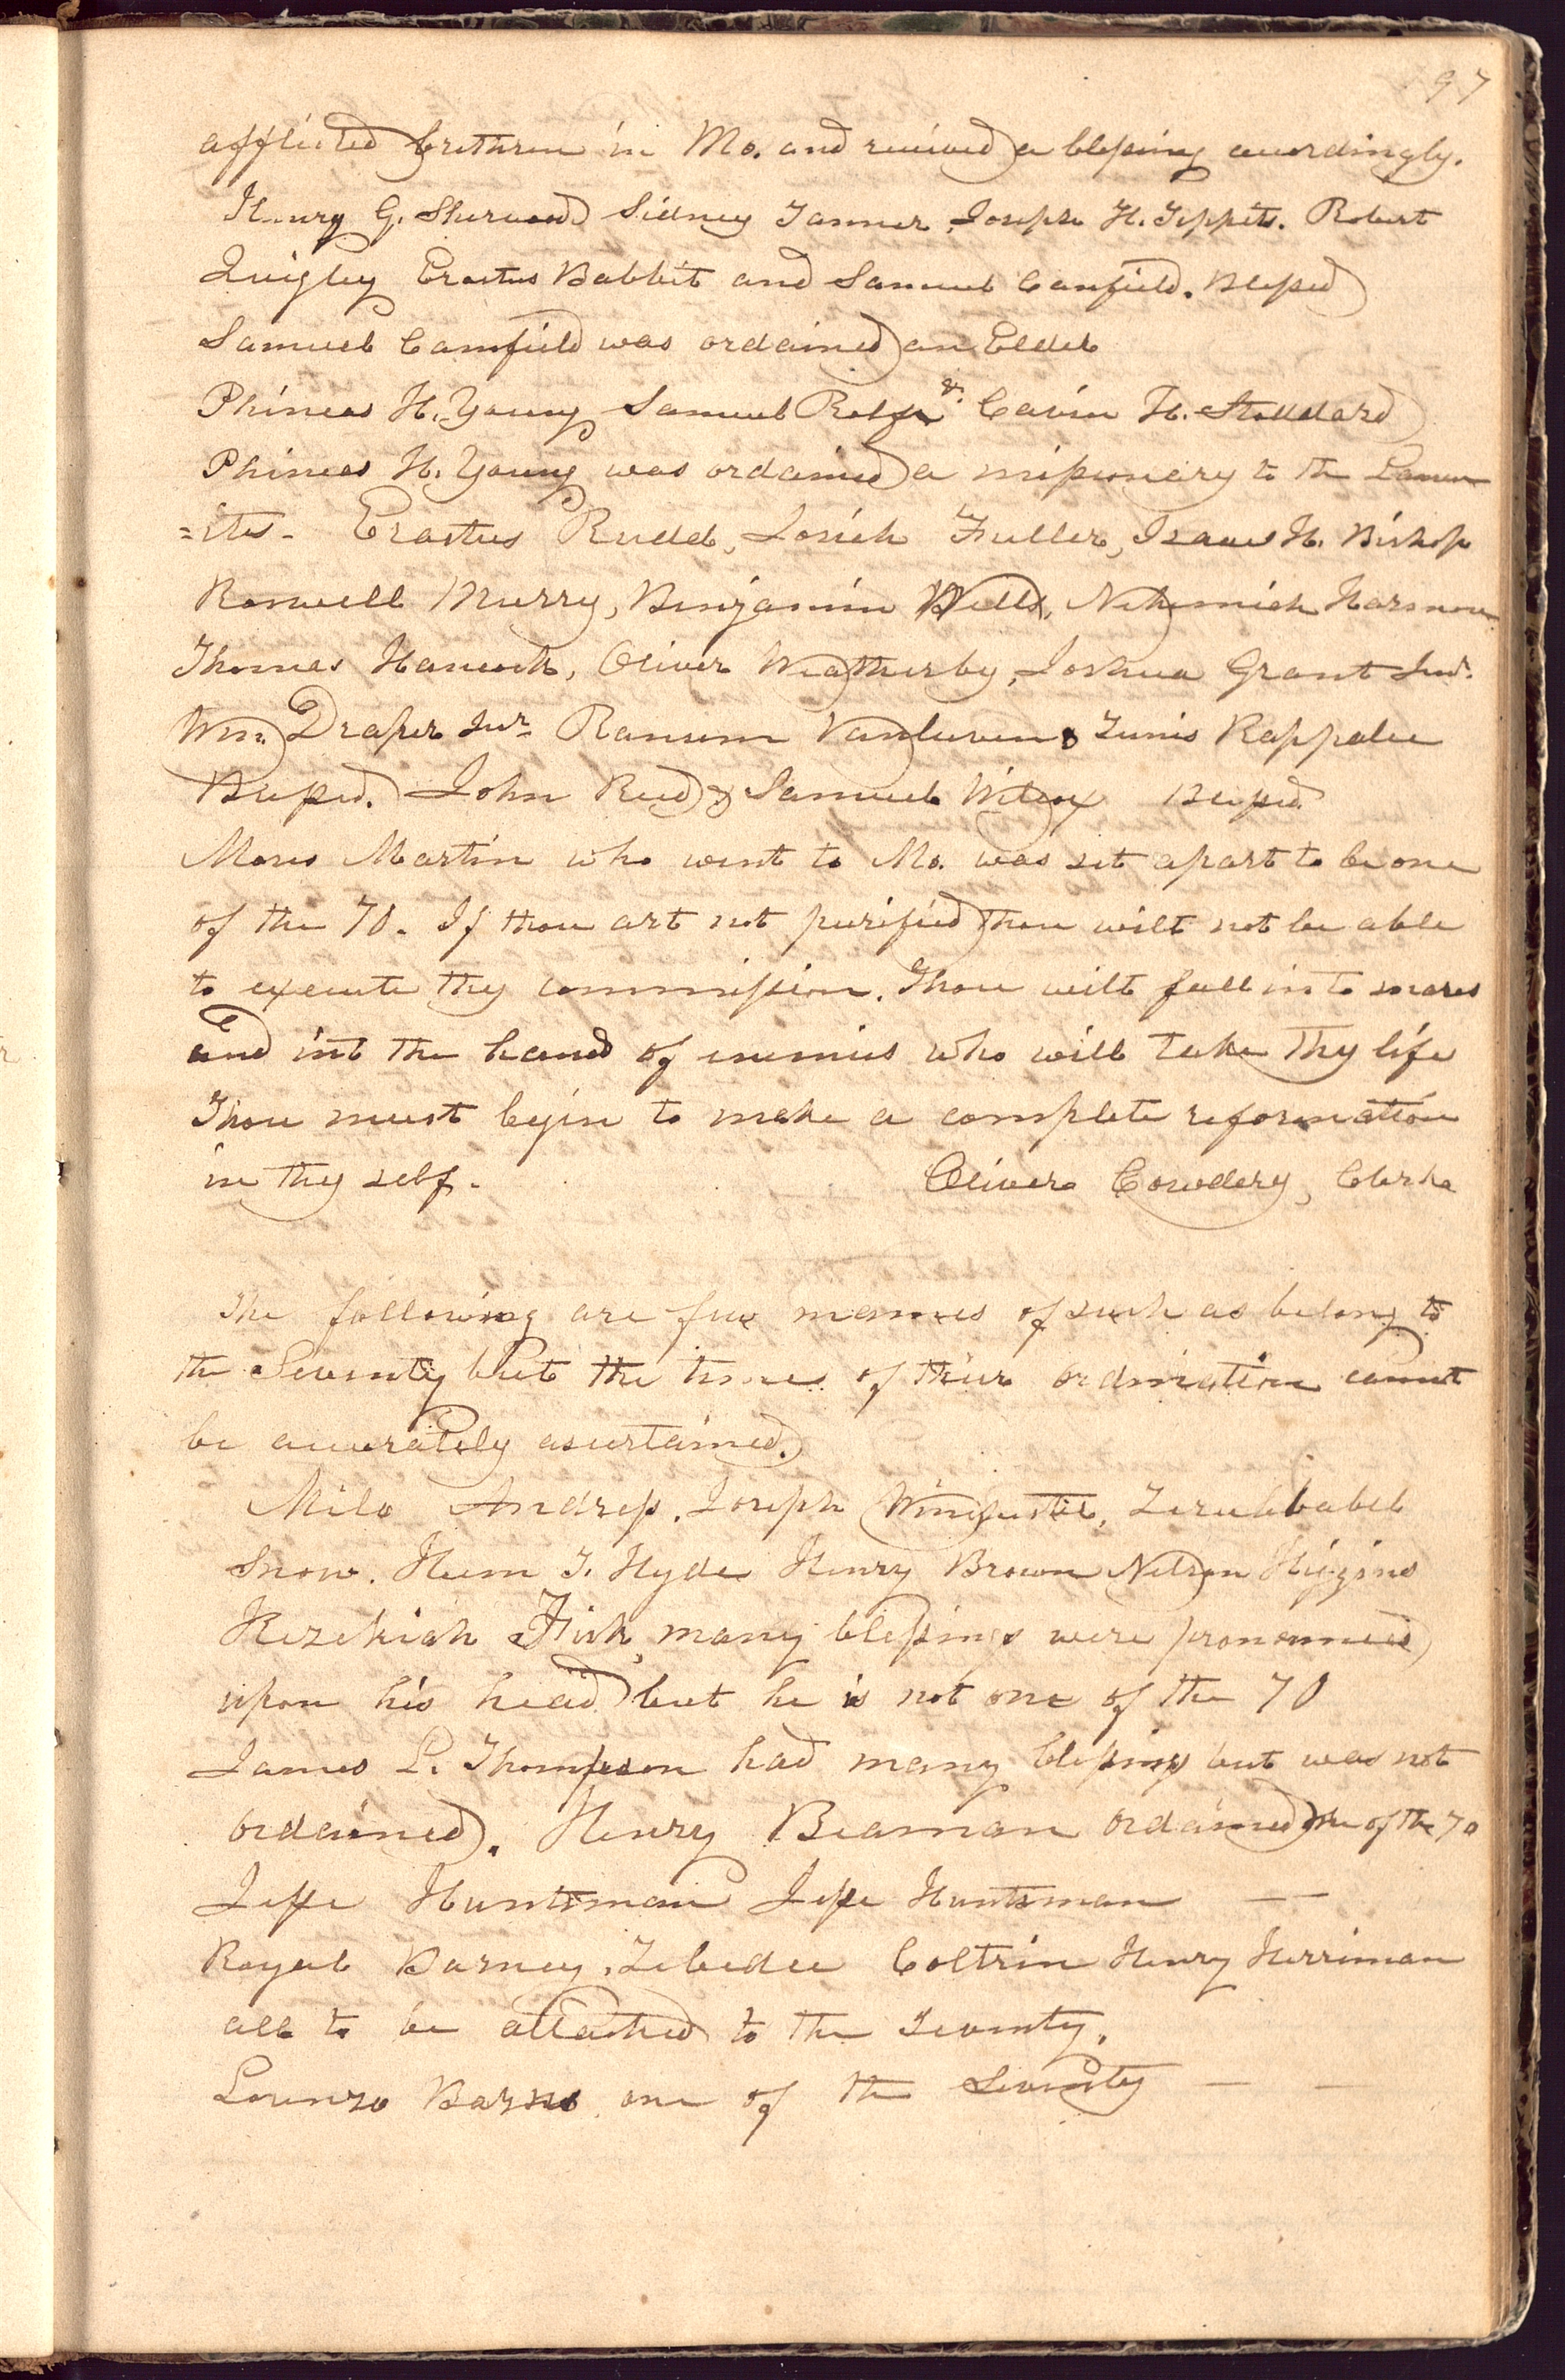 97
afflicted brethren in Mo. and received a blessing accordingly.
Henry G. Sherwood Sidney Tanner, Joseph H. Tippits. Robert
Quigley Erastus Babbit and Samuel Canfield. Blessed
Samuel Camfield was ordained an Elder
Phineas H. Young Samuel Rolfe & Cavin H. Stoddard
Phineas H. Young was ordained a missionary to the Laman
=ites. Erastus Rudd, Josiah Fuller, Isaac H. Bishop
Roswell Murry, Benjamin Wells, Nehemiah Harmon
Thomas Hancock, Oliver Weatherby, Joshua Grant Jur.
Wm. Draper Jur. Ransom Vanleuven & Tunis Rappalee
Blessed. John Reed & Samuel Wilcox Blessed
Moses Martin who went to Mo. was set apart to be one
of the 70. If thou art not purified thou wilt not be able
to execute thy commission. Thou wilt fall into snares
and into the hand of enemies who will take thy life
Thou must begin to make a complete reformation
in thy self. Oliver Cowdery, Clerk
The following are few names of such as belong to
the Seventy but the times of their ordination cannot
be accurately asertained.
Milo Andress, Joseph Winchester, Zerubbabel
Snow. Heem T. Hyde Henry Brown Nelson Higgins
Hezekiah Fisk, many blessings were pronounced
upon his head but he is not one of the 70
James L. Thompson had many blessings but was not
ordained. Henry Beaman ordained one of the 70
Jesse Huntsman Jesse Huntsman —
Royal Barney, Zebedee Coltrin Henry Herriman
all to be attached to the Seventy.
Lorenzo Barns one of the Seventy — —